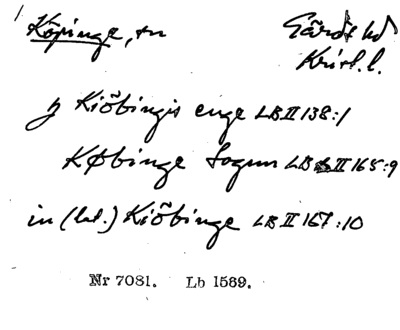 Köpinge, sn Gärds hd
Krist. l.
y Kiöbingis enge LB II 138:1
Købinge Sognn LB II 165:9
in (lat.) Kiöbinge LB II 167:10
Nr 7081. Lb 1569.